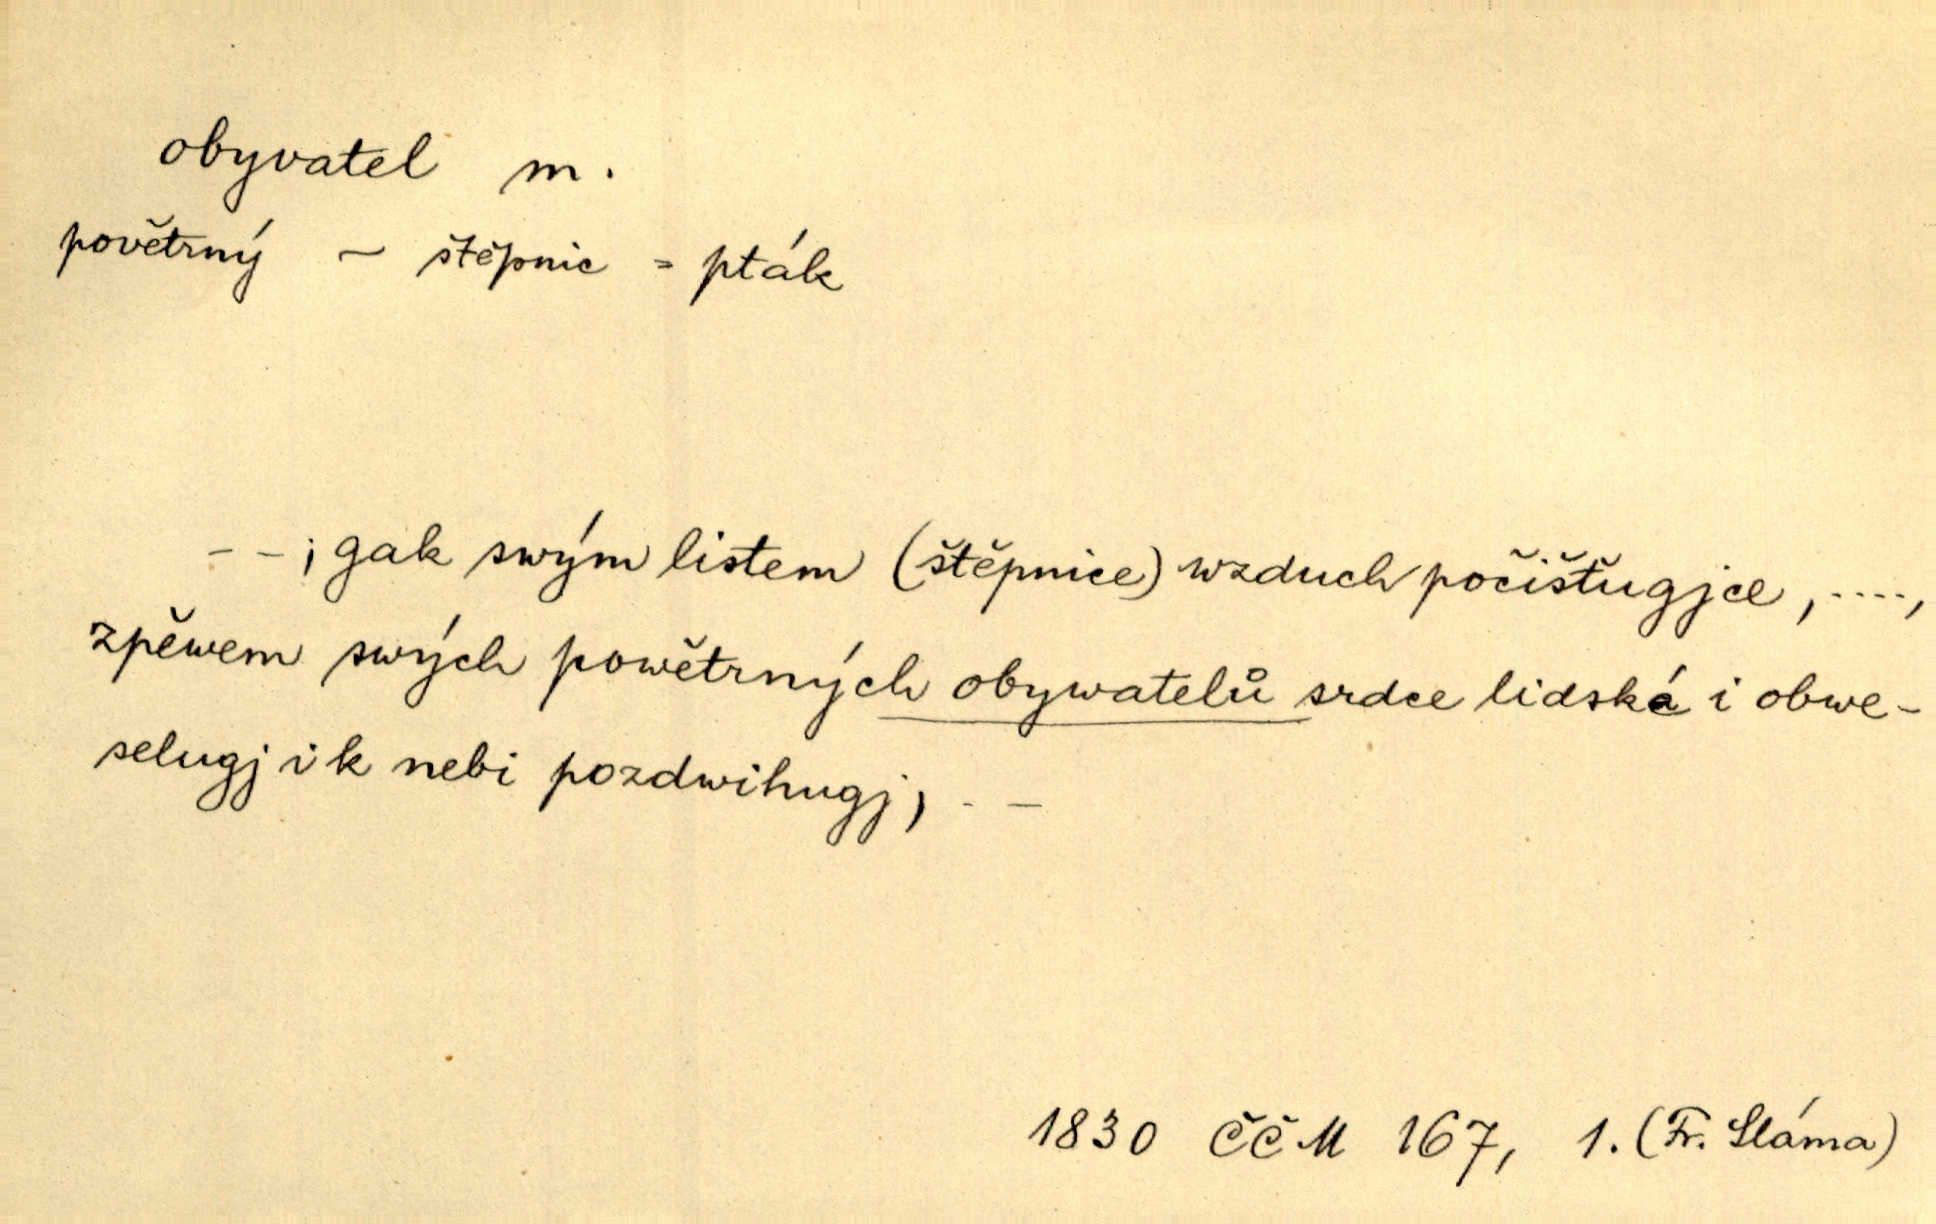 obyvatel m.
povětrný ~ štěpnic = pták
– – ; gak swým listem (štěpnice) wzduch počišťugjce , ....,
zpěwem swých powětrných obywatelů srdce lidská i obwe-
selugj i k nebi pozdwihugj, – –
1830 ČČM 167, 1. (Fr. Sláma)